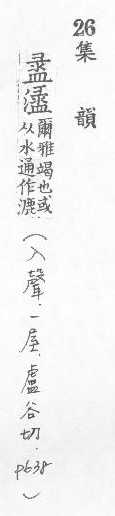 26
集韻
盝
爾雅竭也或
从水通作漉
（入聲.一屋.盧谷切.p638）